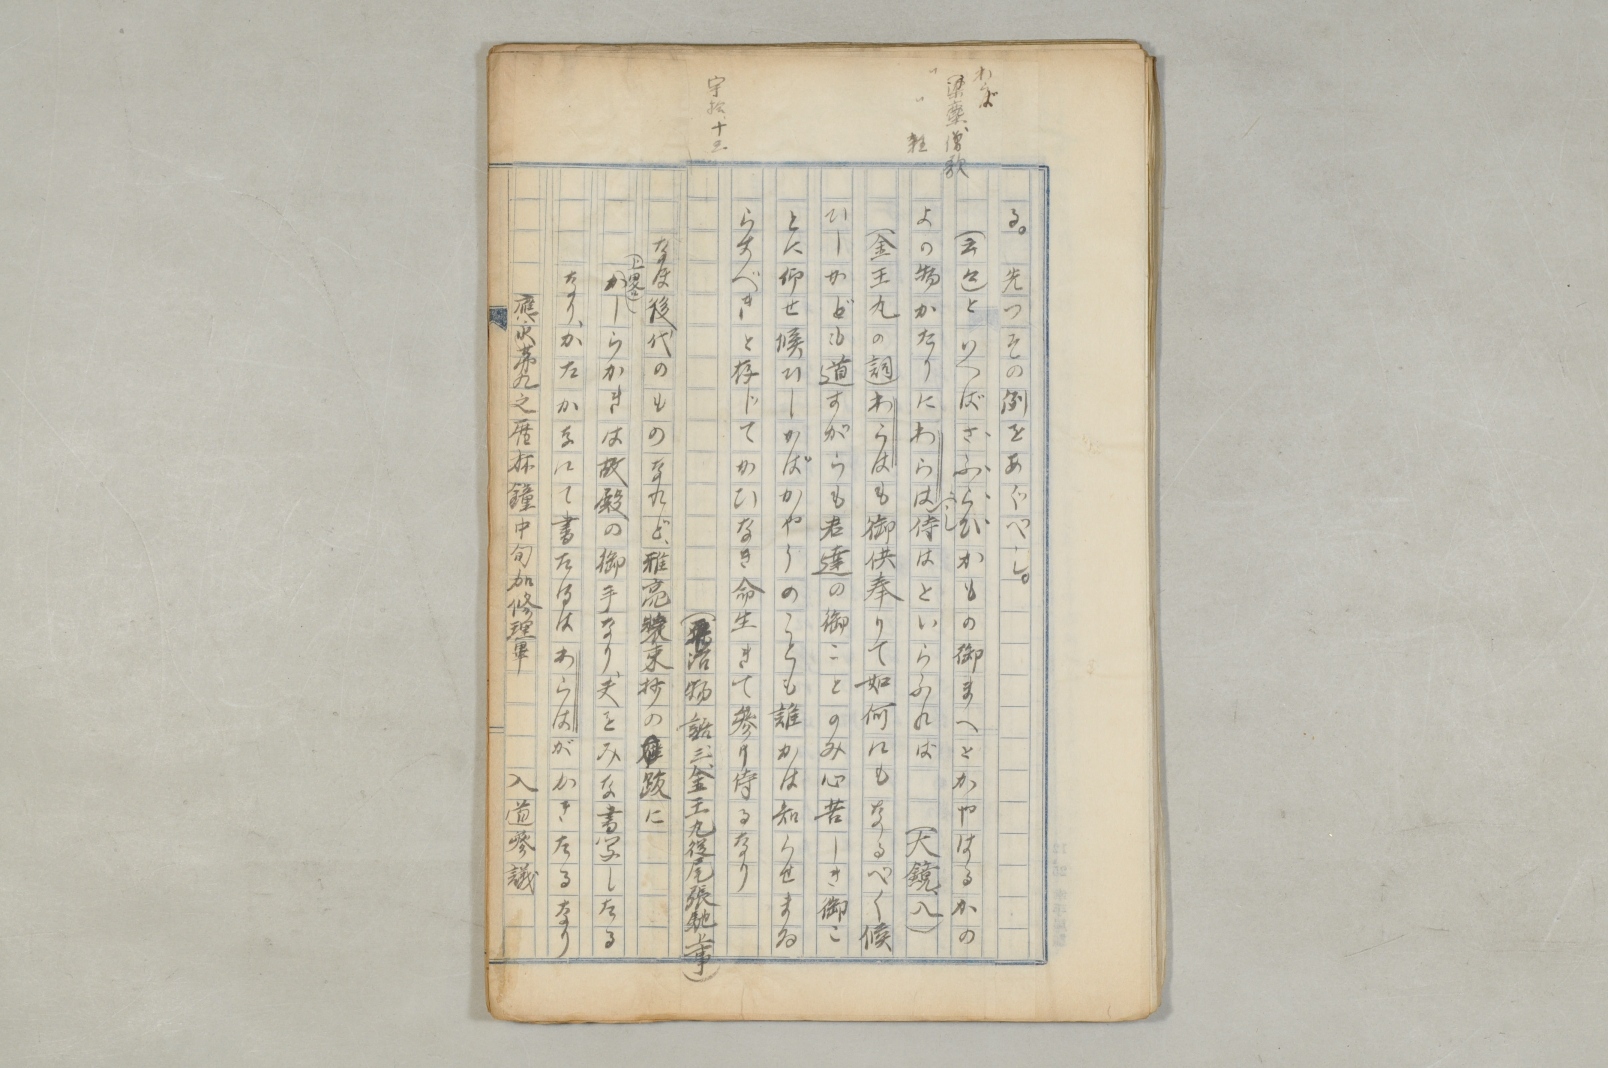 わらば
梁塵、僧歌
〃 〃 雑
宇拾、十五
る。先つその例をあぐべし。
(云々)といへばさふらひかもの御まへとかやはるかの
よの物かたりにわらは侍はといらふれば (大鏡、八)
(金王丸の詞)わらはも御供奉りて如何にもなるべく候
ひしかども道すがらも君達の御ことのみ心苦しき御こ
とに仰せ候ひしかばかやうのことも誰かは知らせまゐ
らすべきと存じてかひなき命生きて参り侍るなり
(平治物語三、金王丸従尾張馳上事)
なほ後代のものなれど、雅亮装束抄の跋に
(上略)かしらかきは故殿の御手なり、夫をみな書写したる
なり、かたかなにて書たるはわらはがかきたるなり
應永第九之暦林鐘中旬加修理畢 入道參議